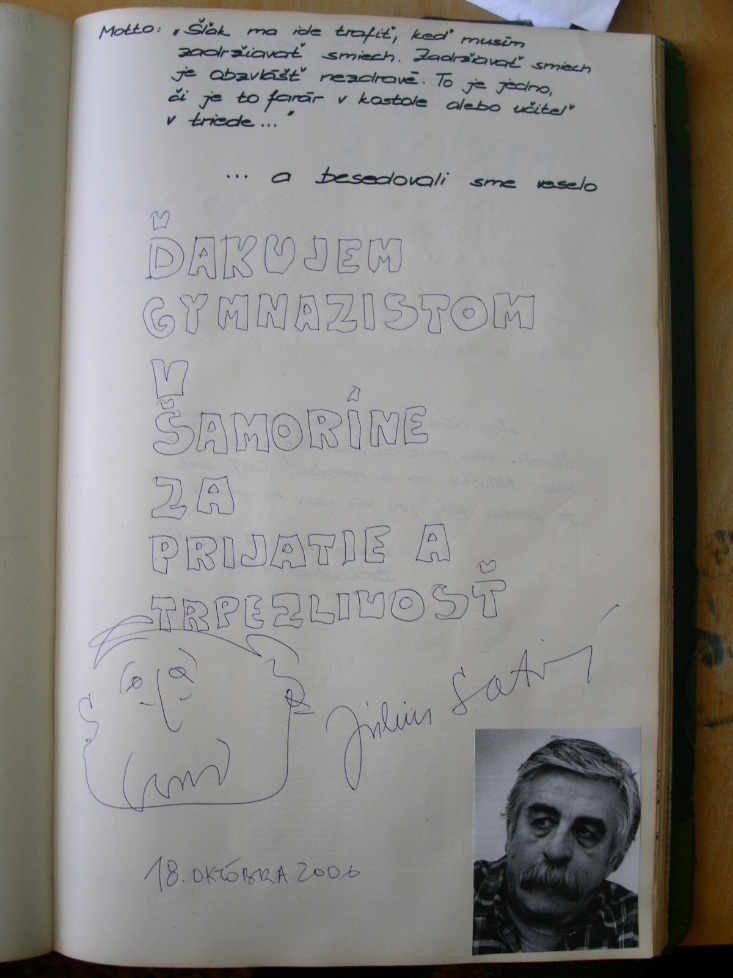 Motto: "Šľak ma ide trafiť, keď musím
zadržiavať smiech. Zadržiavať smiech
je obzvlášť nezdravé. To je jedno,
či je to farár v kostole alebo učiteľ
v triede..."
... a besedovali sme veselo
ĎAKUJEM
GYMNAZISTOM
V
ŠAMORÍNE
ZA
PRIJATIE A
TRPEZLIVOSŤ
Július Satinský
18. OKTÓBRA 2000